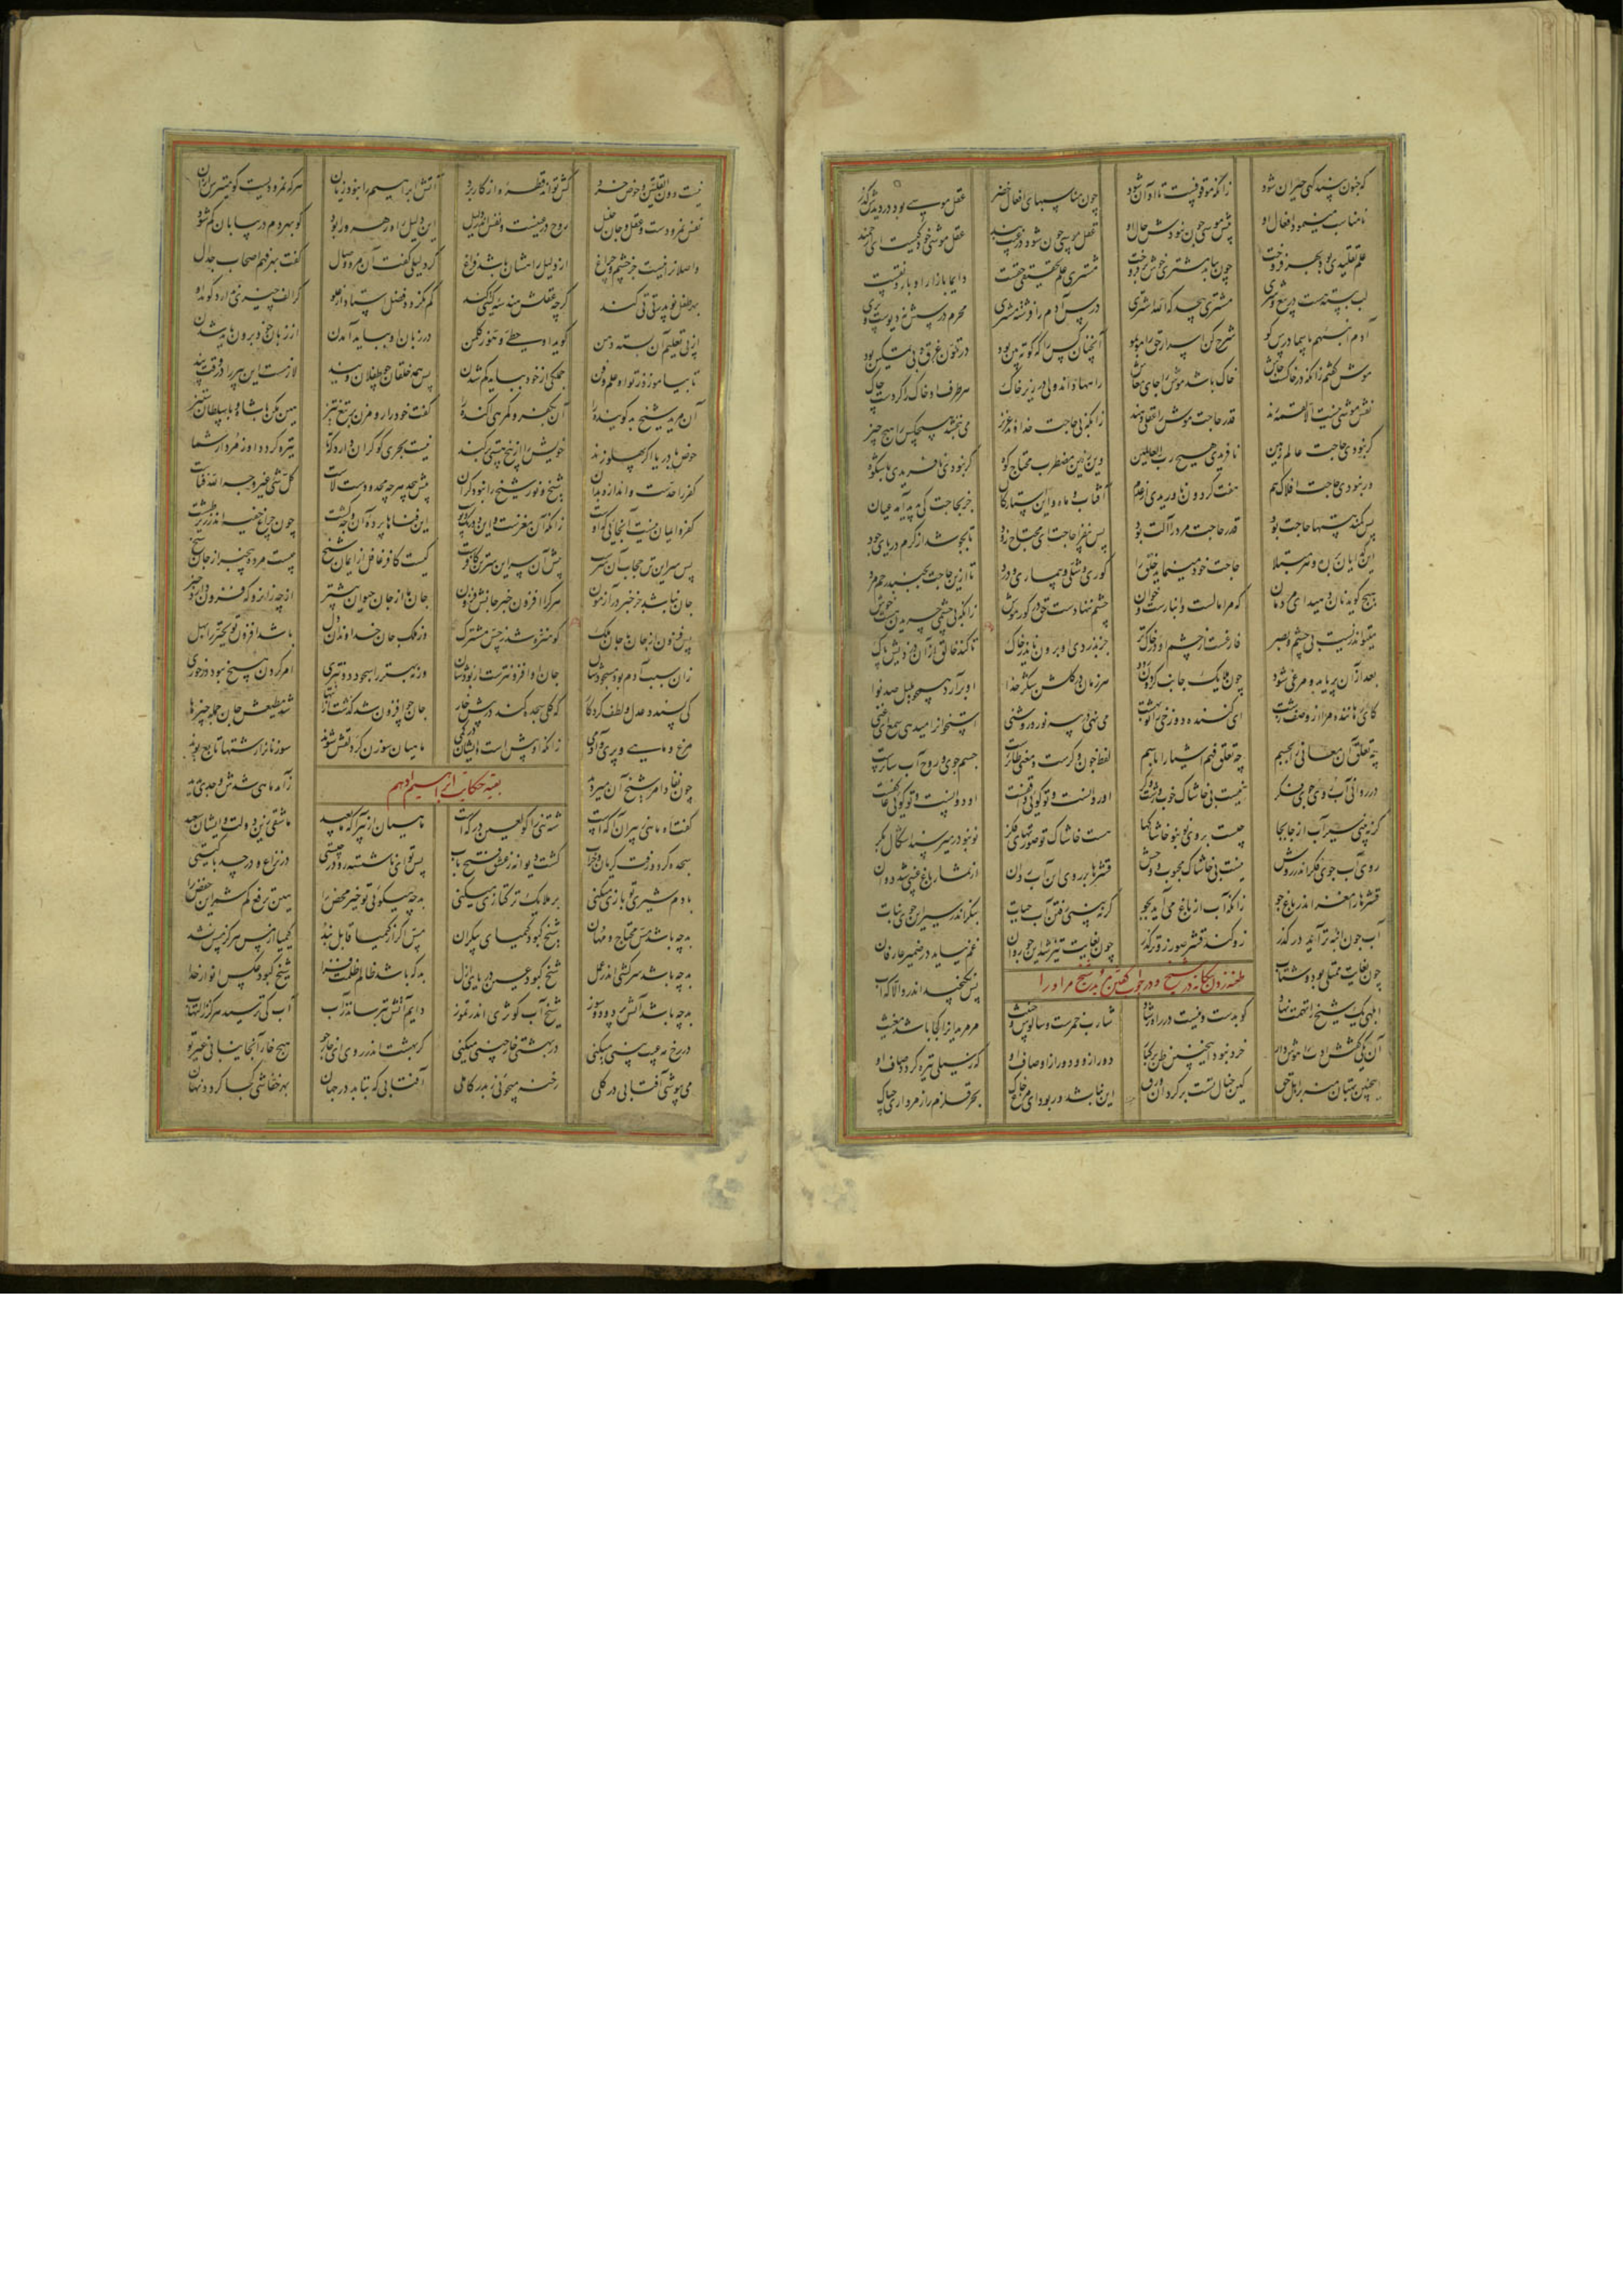 که جنون بیند گهی حیران شود زانکه موقوفست تا او آن شود چون مناسبهای افعال خضر عقل موسی بود در دیدش کدر
نامناسب مینمود افعال او پیش موسی چون نبودش حال او عقل موسی چون شود در غیب بند عقل موشی خود کیست ای ارجمند
علم تقلیدی بود بهر فروخت چون بیابد مشتری خوش برفروخت مشتری علم تحقیقی حقست دایما بازار او با رونقست
لب ببسته مست در بیع و شری مشتری بیحد که الله اشتری درس آدم را فرشته مشتری محرم درسش نه دیوست و پری
آدم انبئهم باسما درس گو شرح کن اسرار حق را مو بمو آنچنان کس را که کوته بین بود در تلون غرق و بی تمکین بود
موش گفتم زانکه در خاکست جاش خاک باشد موش را جای معاش راهها داند ولی در زیر خاک هر طرف او خاک را کردست چاک
نفس موشی نیست الا لقمه رند قدر حاجت موش را عقلی دهند زانکه بی حاجت خداوند عزیز می نبخشد هیچکس را هیچ چیز
گر نبودی حاجت عالم زمین نافریدی هیچ رب العالمین وین زمین مضطرب محتاج کوه گر نبودی نافریدی باشکوه
ور نبودی حاجت افلاک هم هفت گردون ناوریدی از عدم آفتاب و ماه و این استارگان جز بحاجت کی پدید آمد عیان
پس کمند هستها حاجت بود قدر حاجت مرد را آلت بود پس بیفزا حاجت ای محتاج زود تا بجوشد از کرم دریای جود
این گدایان بر ره و هر مبتلا حاجت خود مینماید خلق را کوری و شلی و بیماری و درد تا ازین حاجت بجنبد رحم مرد
هیچ گوید نان دهید ای مردمان که مرا مالست و انبارست و خوان چشم ننهادست حق در کورموش زانکه بی چشمی چریدن هست خوش
میتواند زیست بی چشم و بصر فارغست از چشم او در خاک تر جز بدزدی او برون ناید ز خاک تا کند خالق از آن دزدیش پاک
بعد از آن پر یابد و مرغی شود چون ملایک جانب گردون رود هر زمان در گلشن شکر خدا او برآرد همچو بلبل صد نوا
کای رهاننده مرا از وصف زشت ای کننده دوزخی را تو بهشت می نهی در پیه نور و روشنی استخوان را میدهی سمع ای غنی
چه تعلق آن معانی را بجسم چه تعلق فهم اشیا را باسم لفظ چون وکرست و معنی طایرست جسم جوی و روح آب سایرست
در روانی آب روی جوی فکر نیست بی خاشاک خوب و زشت او روانست و تو گویی واقفست او دوانست و تو گویی عاکفست
گر نبینی سیر آب از جابجا چیست بر وی نو بنو خاشاکها هست خاشاک تو صورتهای فکر نو بنو در میرسد اشکال بکر
روی آب جوی فکر اندر روش نیست بی خاشاک محبوب و وحش قشرها بر روی این آب روان از ثمار باغ غیبی شد دوان
قشرها را مغز اندر باغ جو زانکه آب از باغ می آید بجو گر نبینی رفتن آب حیات بنگر اندر سیر این جوی و نبات
آب چون انبه تر آید در گذر زو کند قشر صور زوتر گذر چون بغایت تیز شد این جو روان غم نپاید در ضمیر عارفان
چون بغایت ممتلی بود و شتاب پس نگنجید اندرو الا که آب
طعنه زدن بیگانه در شیخ و جواب گفتن مرید شیخ مر او را
ابلهی یک شیخ را تهمت نهاد کو بدست و نیست در راه رشاد شارب خمرست و سالوس و خبیث مر مریدان را کجا باشد مغیث
آن یکی گفتش ادب را هوش دار خرد نبود اینچنین ظن بر کبار دور ازو و دور از اوصاف او که ز سیلی تیره گردد صاف او
اینچنین بهتان منه بر اهل حق کین خیال تست برگردان ورق این نباشد ور بود ای مرغ خاک بحر قلزم را ز مرداری چه باک
نیست دون القلتین و حوض خرد کش تواند قطره‌ای از کار برد آتش ابراهیم را نبود زیان هر که نمرودیست گو میترس ازان
نفس نمرودست و عقل و جان خلیل روح در عینست و نفس اندر دلیل این دلیل راه رهرو را بود کو بهر دم در بیابان گم شود
واصلان را نیست جز چشم و چراغ از دلیل و راهشان باشد فراغ گر دلیلی گفت آن مرد وصال گفت بهر فهم اصحاب جدال
بهر طفل نو پدر تی تی کند گرچه عقلش هندسه گیتی کند کم نگردد فضل استاد از علو گر الف چیزی ندارد گوید او
از پی تعلیم آن بسته دهن از زبان خود برون باید شدن در زبان او بباید آمدن
تا بیاموزد ز تو او علم و فن جملگی از خود بباید گم شدن پس همه خلقان چو طفلان ویند لازمست این پیر را در وقت پند
آن مرید شیخ بد گوینده را آن بکفر و گمرهی آکنده را گفت خود را تو مزن بر تیغ تیز هین مکن با شاه و با سلطان ستیز
حوض با دریا اگر پهلو زند خویش را از بیخ هستی برکند نیست بحری کو کران دارد که تا تیره گردد او ز مردار شما
کفر را حدست و اندازه بدان شیخ و نور شیخ را نبود کران پیش بیحد هر چه محدودست لاست کل شیء غیر وجه الله فناست
کفر و ایمان نیست آنجایی که اوست زانکه آن مغزست و این دو رنگ و پوست این فناها پرده آن وجه گشت چون چراغ خفیه اندر زیر طشت
پس سر این تن حجاب آن سرست پیش آن سر این سر تن کافرست کیست کافر غافل از ایمان شیخ چیست مرده بیخبر از جان شیخ
جان نباشد جز خبر در آزمون هر که را افزون خبر جانش فزون جان ما از جان حیوان بیشتر از چه زانرو که فزون دارد خبر
پس فزون از جان ما جان ملک کو منزه شد ز حس مشترک وز ملک جان خداوندان دل باشد افزون تو تحیر را بهل
زان سبب آدم بود مسجودشان جان او افزونترست از بودشان ورنه بهتر را سجود دون تری امر کردن هیچ نبود در خوری
کی پسندد عدل و لطف کردگار که گلی سجده کند در پیش خار جان چو افزون شد گذشت از انتها شد مطیعش جان جمله چیزها
مرغ و ماهی و پری و آدمی زانکه او بیش است و ایشان در کمی ماهیان سوزن گر دلقش شوند سوزنان را رشتها تابع بوند
بقیه حکایت ابراهیم ادهم
چون نفاذ امر شیخ آن میر دید زآمد ماهی شدش وجدی پدید
گفت اه ماهی ز پیران آگهست شه تنی را کو لعین درگهست ماهیان از پیر آگه ما بعید ما شقی زین دولت و ایشان سعید
سجده کرد و رفت گریان و خراب گشت دیوانه ز عشق فتح باب پس تو ای ناشسته رو در چیستی در نزاع و در حسد با کیستی
با دم شیری تو بازی میکنی بر ملایک ترکتازی میکنی بد چه میگویی تو خیر محض را هین ترفع کم شمر این خفض را
بد چه باشد مس محتاج و مهان شیخ که بود کیمیای بیکران مس اگر از کیمیا قابل نبد کیمیا از مس هرگز مس نشد
بد چه باشد سرکشی آتش عمل شیخ که بود عین دریای ازل بد که باشد ظالم ظلمت فزا شیخ که بود عکس انوار خدا
بد چه باشد آتش پر دود و سوز شیخ آب کوثری اندر تموز دایم آتش را بترسانند از آب آب کی ترسید هرگز ز التهاب
در رخ مه عیب بینی میکنی در بهشتی خارچینی میکنی گر بهشت اندر روی ای خارجو هیچ خار آنجا نیابی غیر تو
می بپوشی آفتابی در گلی رخنه میجویی ز بدر کاملی آفتابی که بتابد در جهان بهر خفاشی کجا گردد نهان